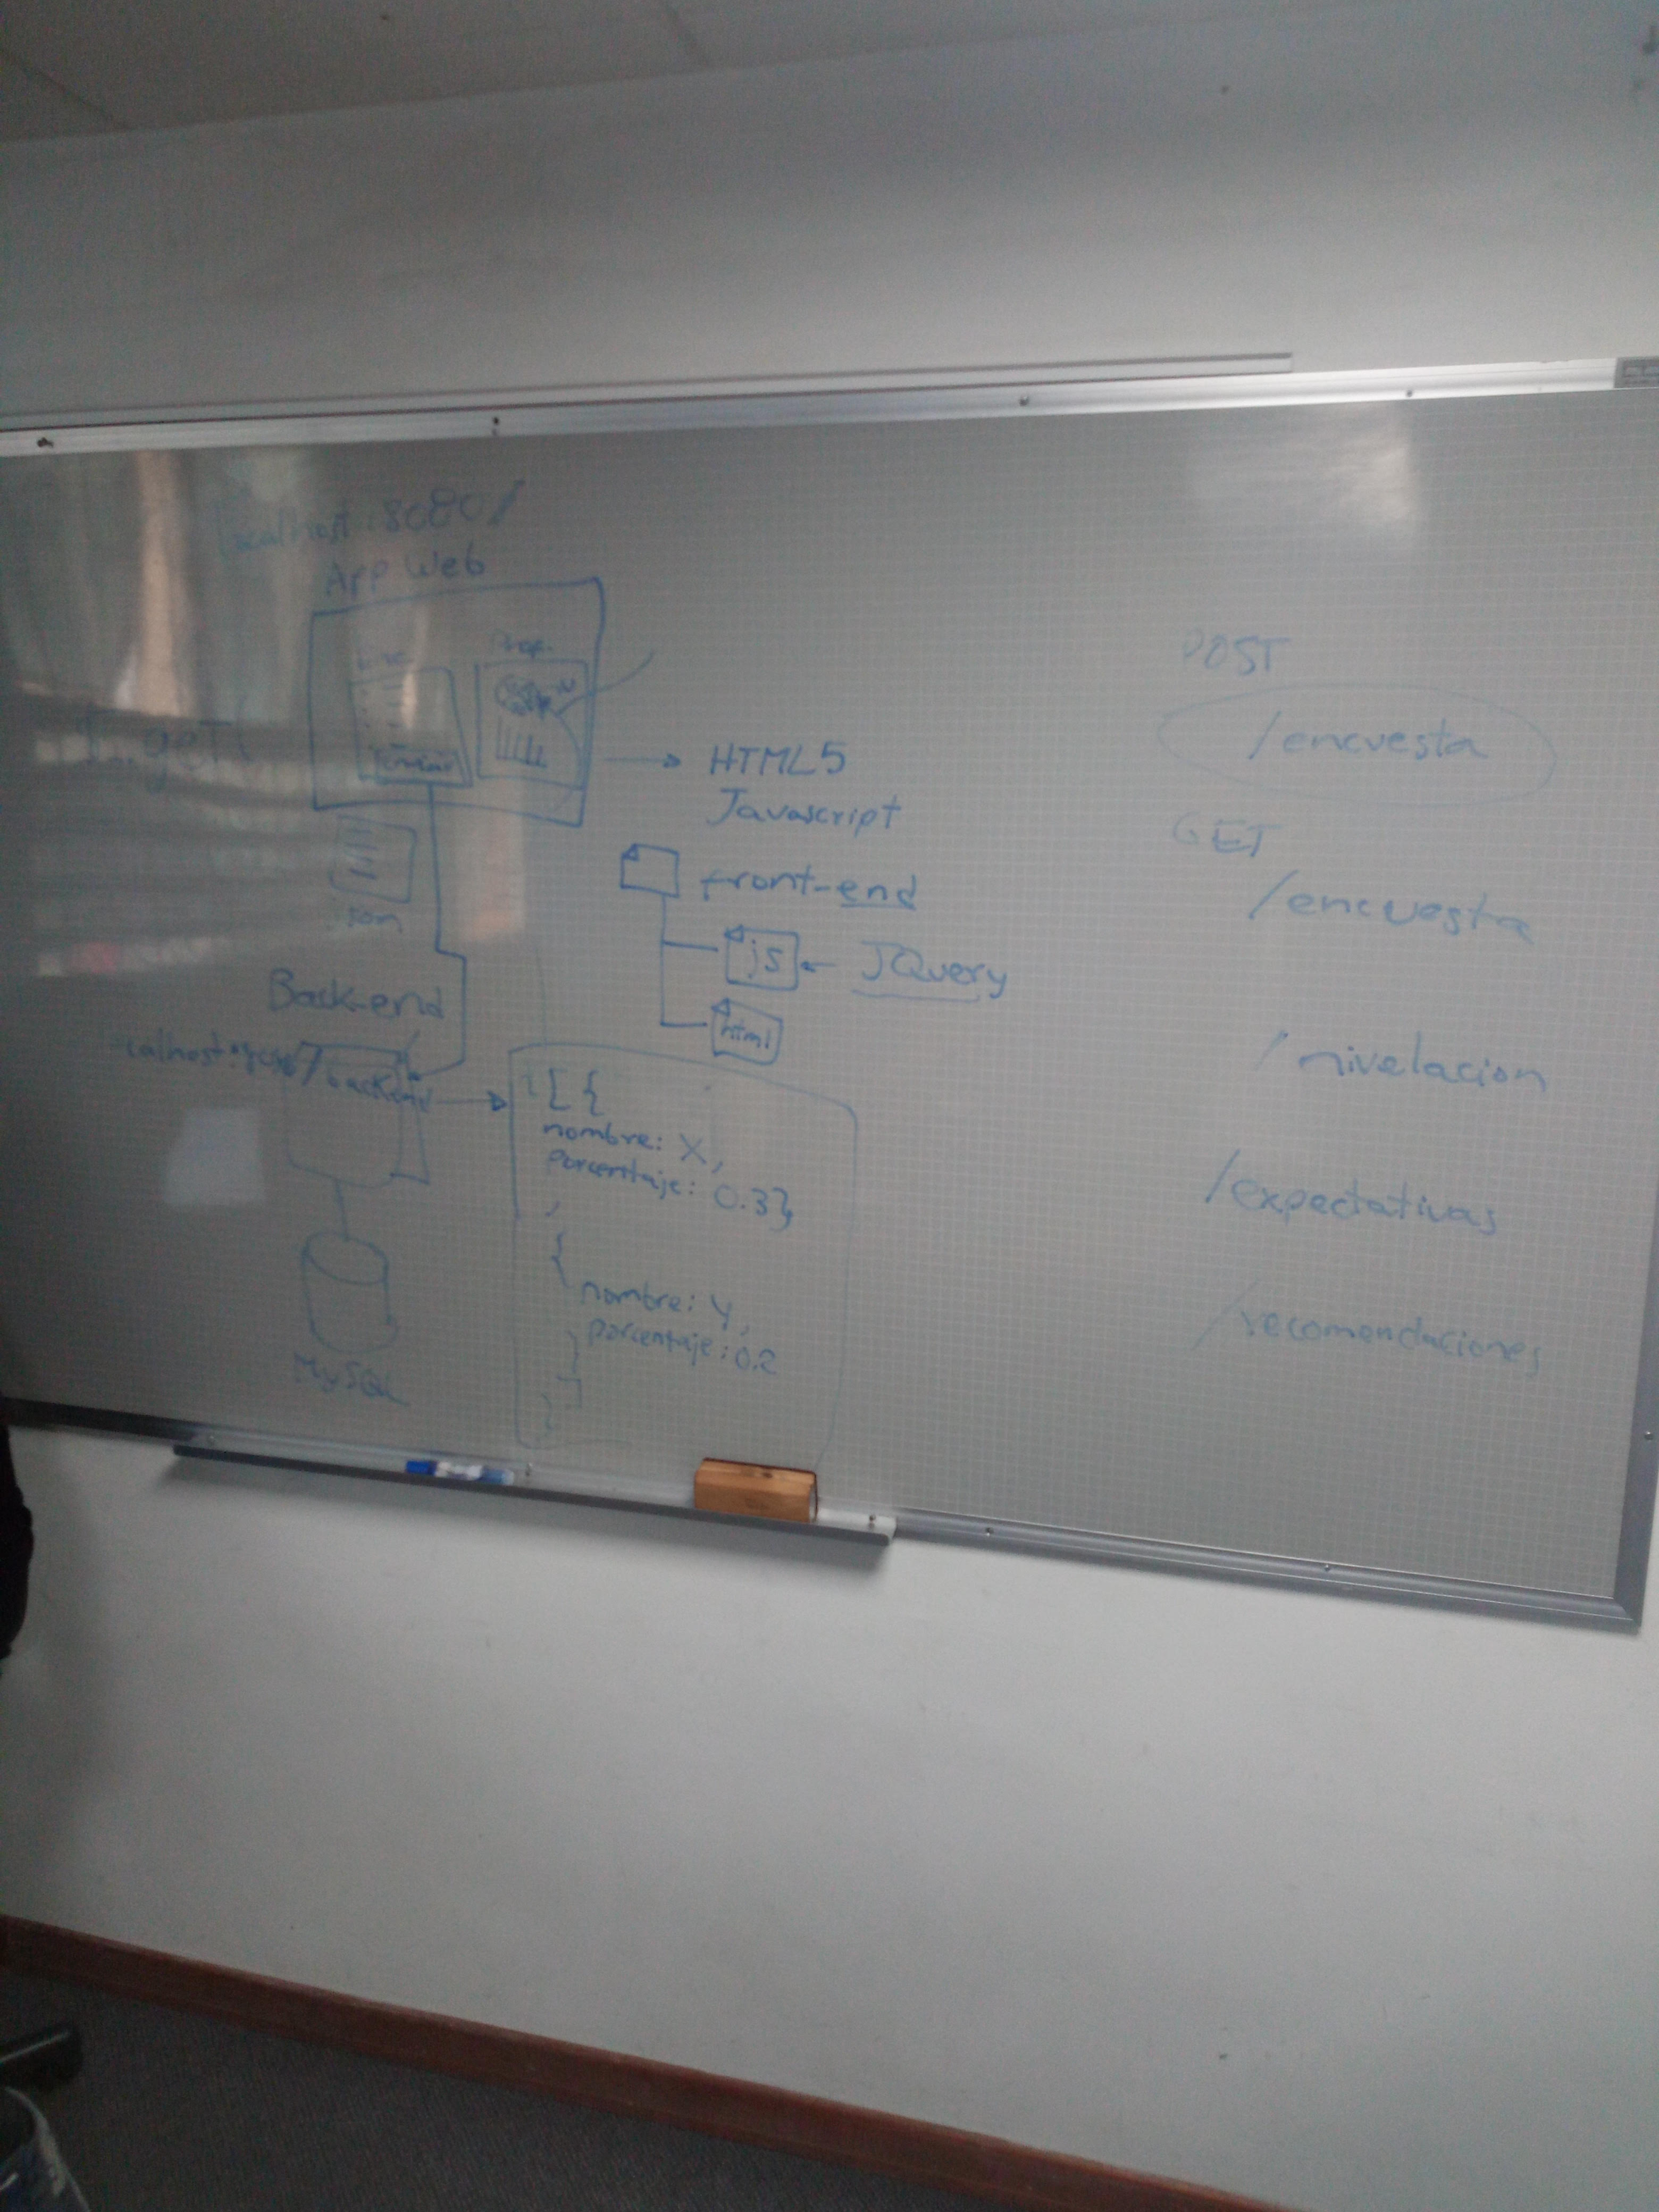 localhost:8080/
App Web
Enc.
$.get(
Enviar
HTML5
Javascript
front-end
js
JQuery
html
json
Back-end
/backend
[{
nombre: X,
porcentaje: 0.3}
,
{
nombre: Y,
porcentaje: 0.2
}
]
MySQL
POST
/encuesta
GET
/encuesta
/nivelacion
/expectativas
/recomendaciones